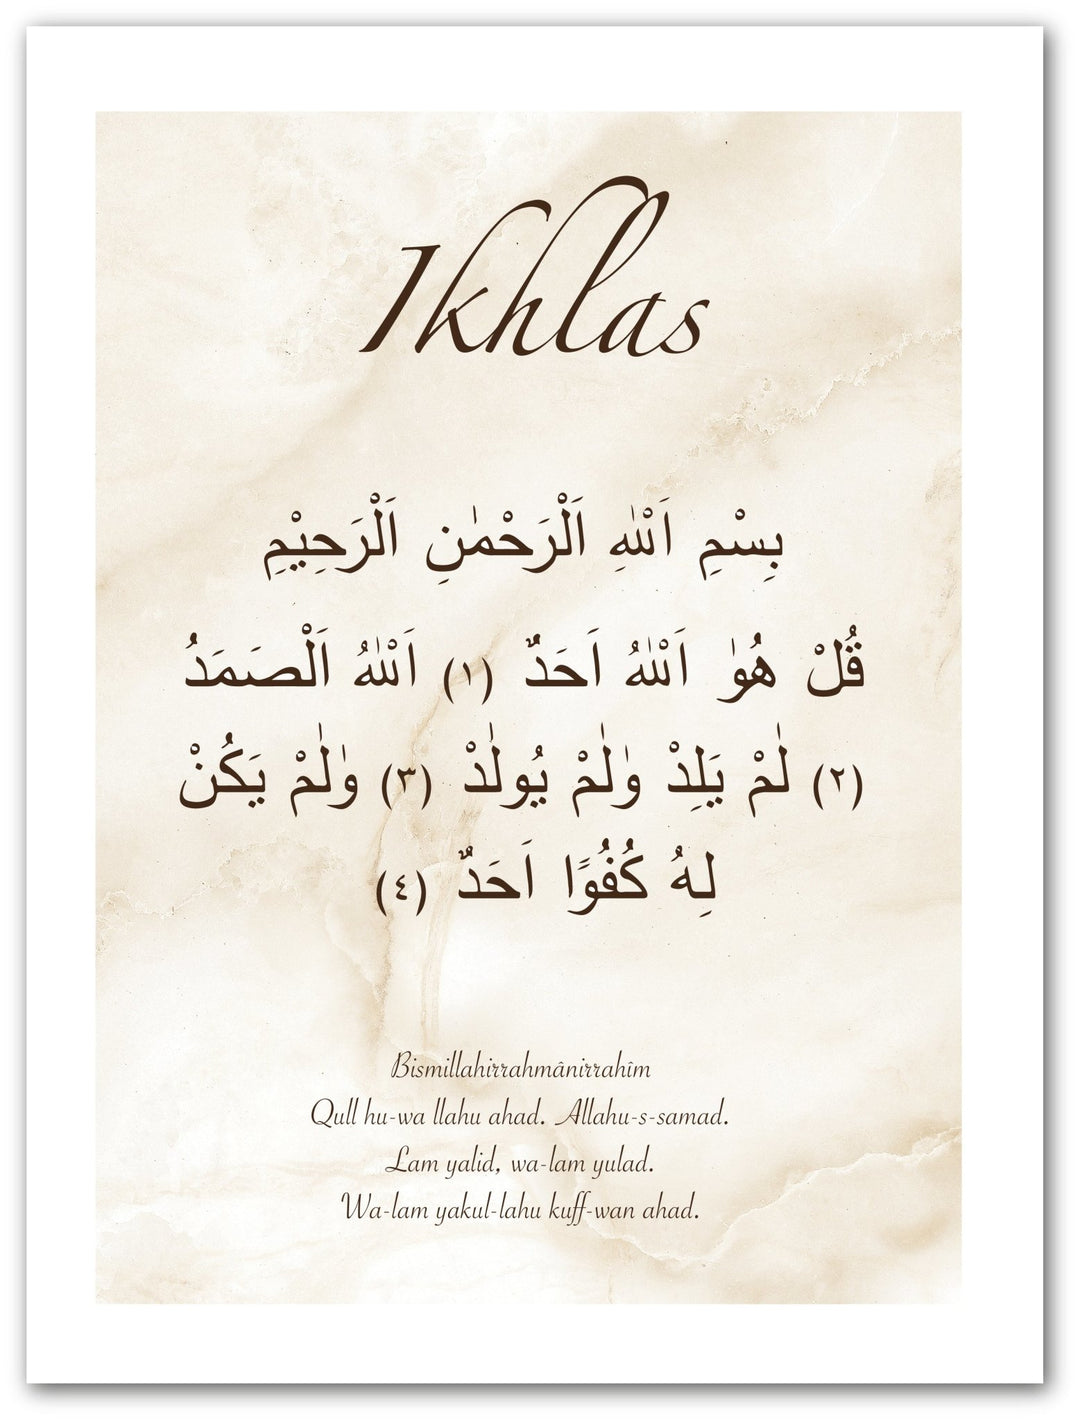 Ikhlas
بِسْمِ اَللّٰهِ اَلْرَحْمٰنِ اَلْرَحِيْمِ
قُلْ هُوٰ اَللّٰهُ اَحَدٌ (١) اَللّٰهُ اَلْصَمَدُ
(٢) لٰمْ يَلِدْ وٰلٰمْ يُولٰدْ (٣) وٰلٰمْ يَكُنْ
لِهُ كُفُوًا اَحَدٌ (٤)
Bismillahirrahmânirrahîm
Qull hu-wa llahu ahad. Allahu-s-samad.
Lam yalid, wa-lam yulad.
Wa-lam yakul-lahu kuff-wan ahad.